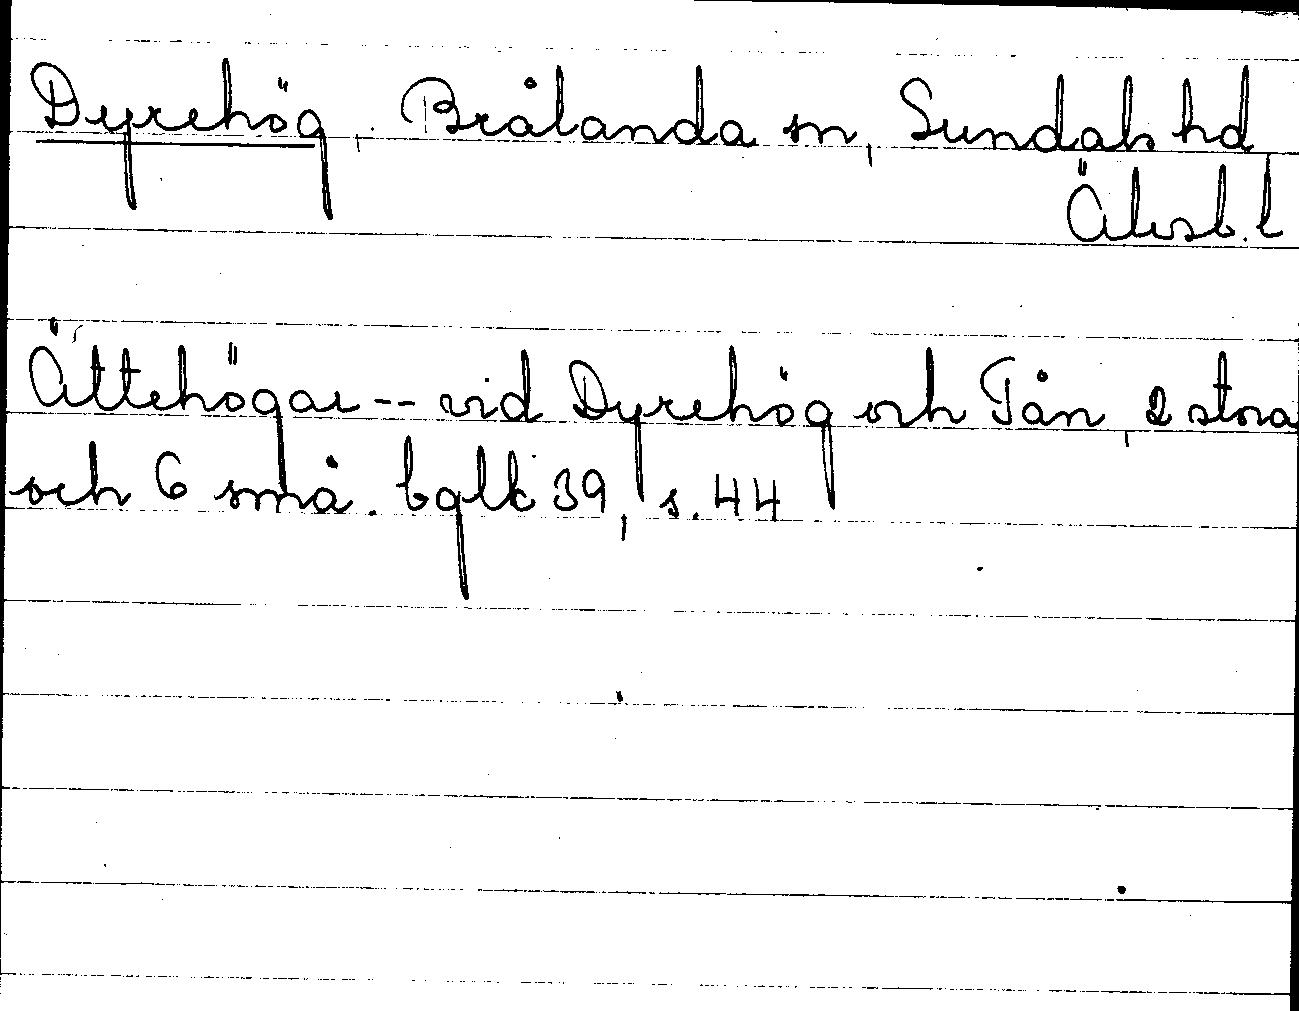 Dyrehög, Brålanda sn, Sundals hd,
Älvsb. l
Ättehögar -- vid Dyrehög och Tån, 2 stora
och 6 små. bglk 39, s. 44